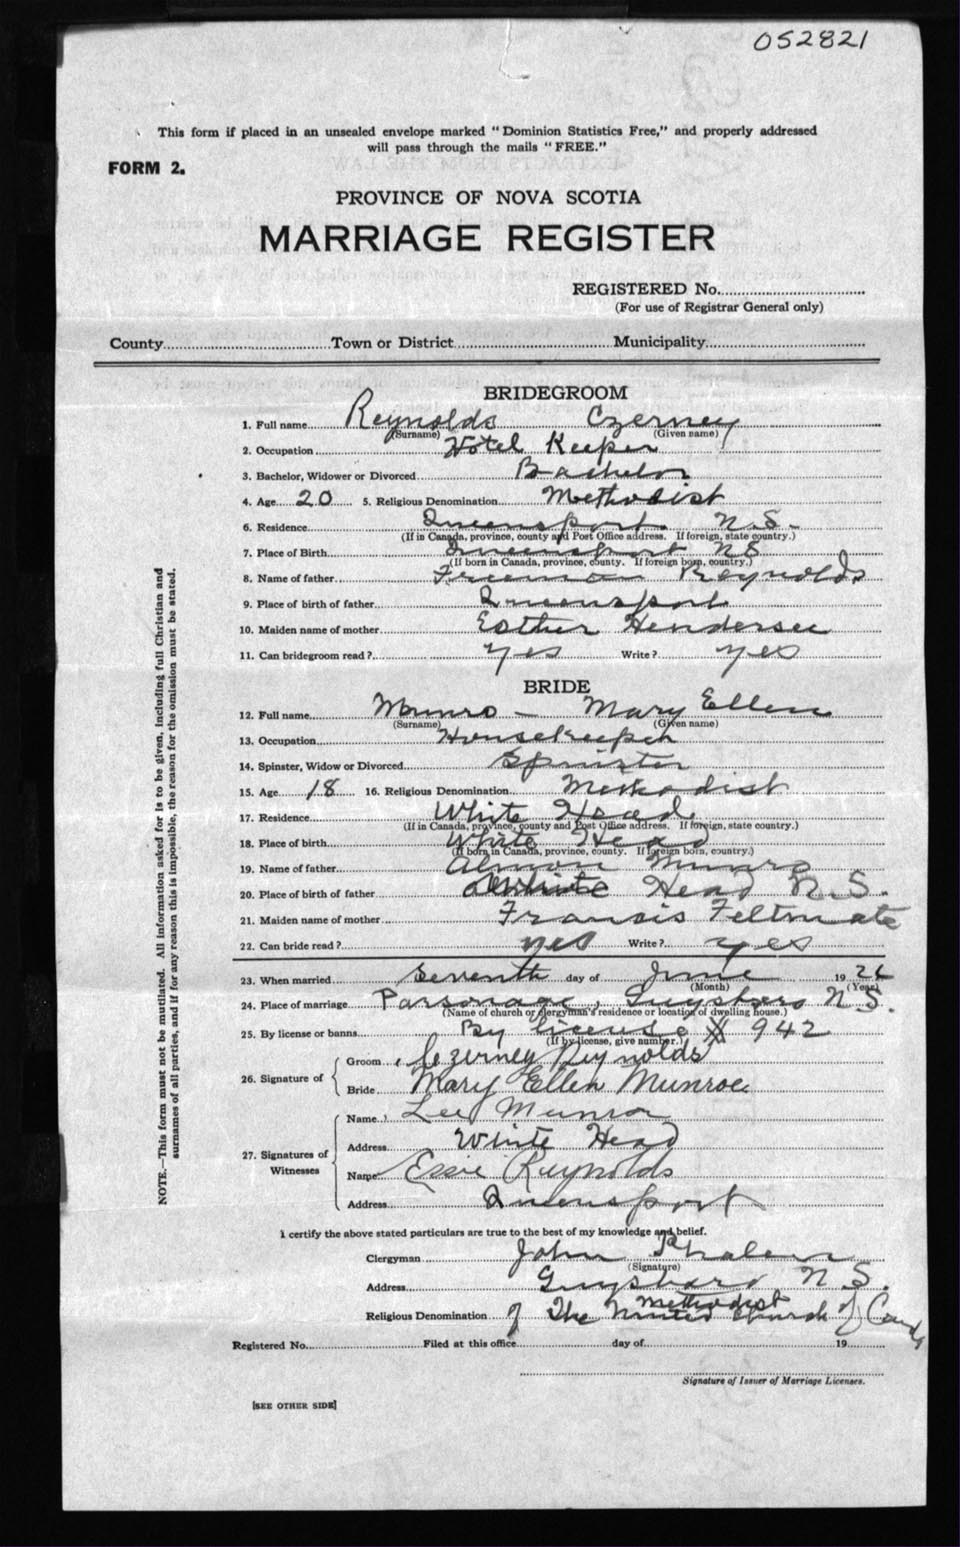 052821
This form if placed in an unsealed envelope marked "Dominion Statistics Free," and properly addressed
will pass through the mails "FREE."
FORM 2.
PROVINCE OF NOVA SCOTIA
MARRIAGE REGISTER
REGISTERED No.
(For use of Registrar General only)
County Town or District Municipality
BRIDEGROOM
1. Full name Reynolds Czerney
(Surname) (Given name)
2. Occupation Hotel Keeper
3. Bachelor, Widower or Divorced Bachelor
4. Age 20 5. Religious Denomination Methodist
6. Residence Queensport N.S.
(If in Canada, province, county and Post Office address. If foreign, state country.)
7. Place of Birth Queensport NS
(If born in Canada, province, county. If foreign born, country.)
8. Name of father Freeman Reynolds
9. Place of birth of father Queensport
10. Maiden name of mother Esther
11. Can bridegroom read? yes Write? yes
BRIDE
12. Full name Munro - Mary Ellen
(Surname) (Given name)
13. Occupation Housekeeper
14. Spinster, Widow or Divorced Spinster
15. Age 18 16. Religious Denomination Methodist
17. Residence White Head
(If in Canada, province, county and Post Office address. If foreign, state country.)
18. Place of birth White Head
(If born in Canada, province, county. If foreign born, country.)
19. Name of father Almon Munro
20. Place of birth of father White Head N.S.
21. Maiden name of mother Francis Feltmate
22. Can bride read? yes Write? yes
23. When married Seventh day of June 1926
(Month) (Year)
24. Place of marriage Parsonage, Guysboro N.S.
(Name of church or clergyman's residence or location of dwelling house.)
25. By license or banns By license 942
(If by license, give number.)
26. Signature of
Groom Czerney Reynolds
Bride Mary Ellen Munroe
27. Signatures of Witnesses
Name Lee Munro
Address White Head
Name Essie Reynolds
Address Queensport
I certify the above stated particulars are true to the best of my knowledge and belief.
Clergyman John Phalen
(Signature)
Address Guysboro N.S.
methodist
Religious Denomination of The United Church of Canada
Registered No. Filed at this office day of 19
Signature of Issuer of Marriage Licenses.
[SEE OTHER SIDE]
NOTE.—This form must not be mutilated. All information asked for is to be given, including full Christian and
surnames of all parties, and if for any reason this is impossible, the reason for the omission must be stated.